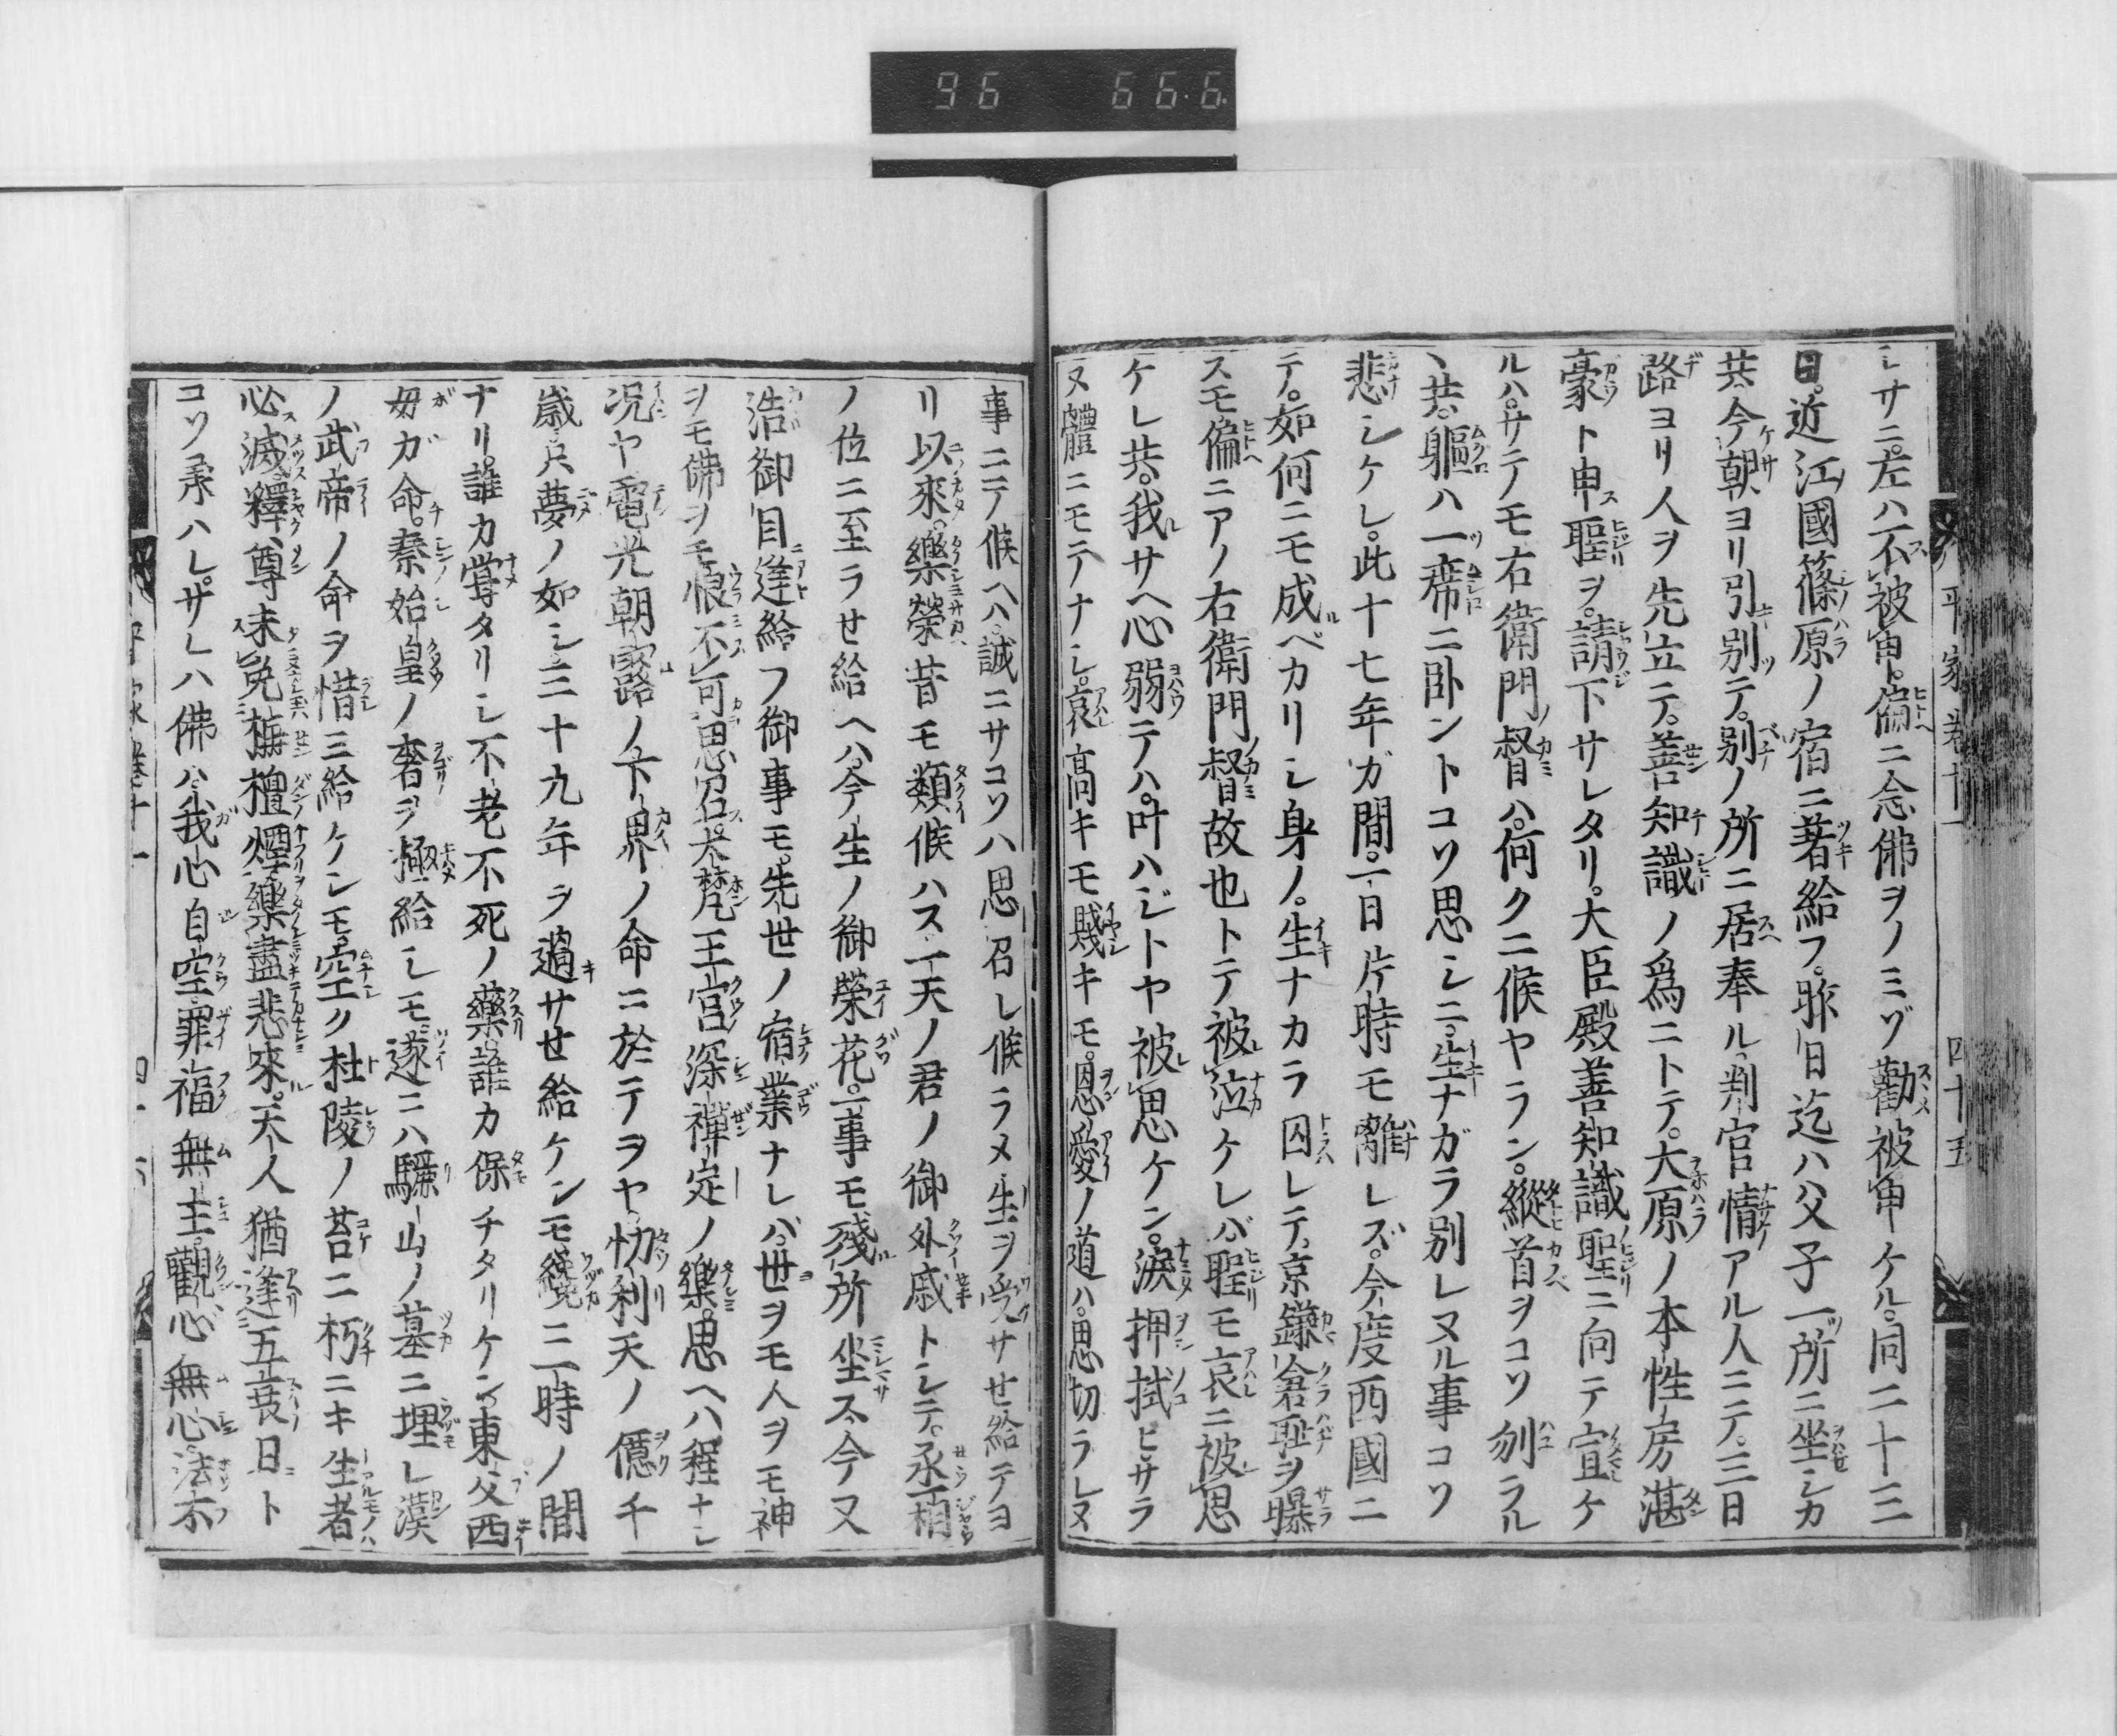 96 66.6.
シサニ。左ハ不被申。偏ニ念佛ヲノミゾ勸被申ケル。同二十三
日。近江國篠原ノ宿ニ著給フ。昨日迄ハ父子一所ニ坐シカ
共。今朝ヨリ引別テ。別ノ所ニ居奉ル。判官情アル人ニテ。三日
路ヨリ人ヲ先立テ。善知識ノ爲ニトテ。大原ノ本性房湛
豪ト申聖ヲ。請下サレタリ。大臣殿善知識聖ニ向テ宣ケ
ルハ。サテモ右衛門督ハ。何クニ候ヤラン。縱首ヲコソ刎ラル
ヽ共。軀ハ一席ニ卧ントコソ思シニ。生ナガラ別レヌル事コソ
悲シケレ。此十七年ガ間。一日片時モ離レズ。今度西國ニ
テ。如何ニモ成ベカリシ身ノ。生ナカラ囚レテ。京鎌倉恥ヲ曝
スモ。偏ニアノ右衛門督故也トテ被泣ケレバ。聖モ哀ニ被思
ケレ共。我サヘ心弱テハ。叶ハジトヤ被思ケン。淚押拭ヒサラ
ヌ體ニモテナシ。哀高キモ賤キモ。恩愛ノ道ハ。思切ラレヌ
平家卷十一 四十五
事ニテ候ヘハ。誠ニサコソハ思召レ候ラメ。生ヲ受サセ給テヨ
リ以來。樂榮昔モ類候ハス。一天ノ君ノ御外戚トシテ。丞相
ノ位ニ至ラせ給ヘハ。今生ノ御榮花。一事モ殘所坐ス。今又
浩御目逢給フ御事モ。先世ノ宿業ナレバ。世ヲモ人ヲモ神
ヲモ佛ヲモ恨不可思召。大梵王宮深禪定ノ樂。思ヘハ程ナシ
况ヤ電光朝露ノ下界ノ命ニ於テヲヤ。忉利天ノ億千
歳只夢ノ如シ三十九年ヲ過サせ給ケンモ。纔ニ一時ノ間
ナリ。誰カ甞タリシ不老不死ノ藥。誰カ保チタリケン東父西
母ガ命。秦始皇ノ奢ヲ極給シモ。遂ニハ驪山ノ墓ニ埋レ漢
ノ武帝ノ命ヲ惜三給ケンモ。空ク杜陵ノ苔ニ朽ニキ生者
必滅。釋尊未免栴檀煙。樂盡悲來。天人猶逢五衰日ト
コソ承ハレ。サレハ佛ハ我心自空罪福無主。觀心無心。法不